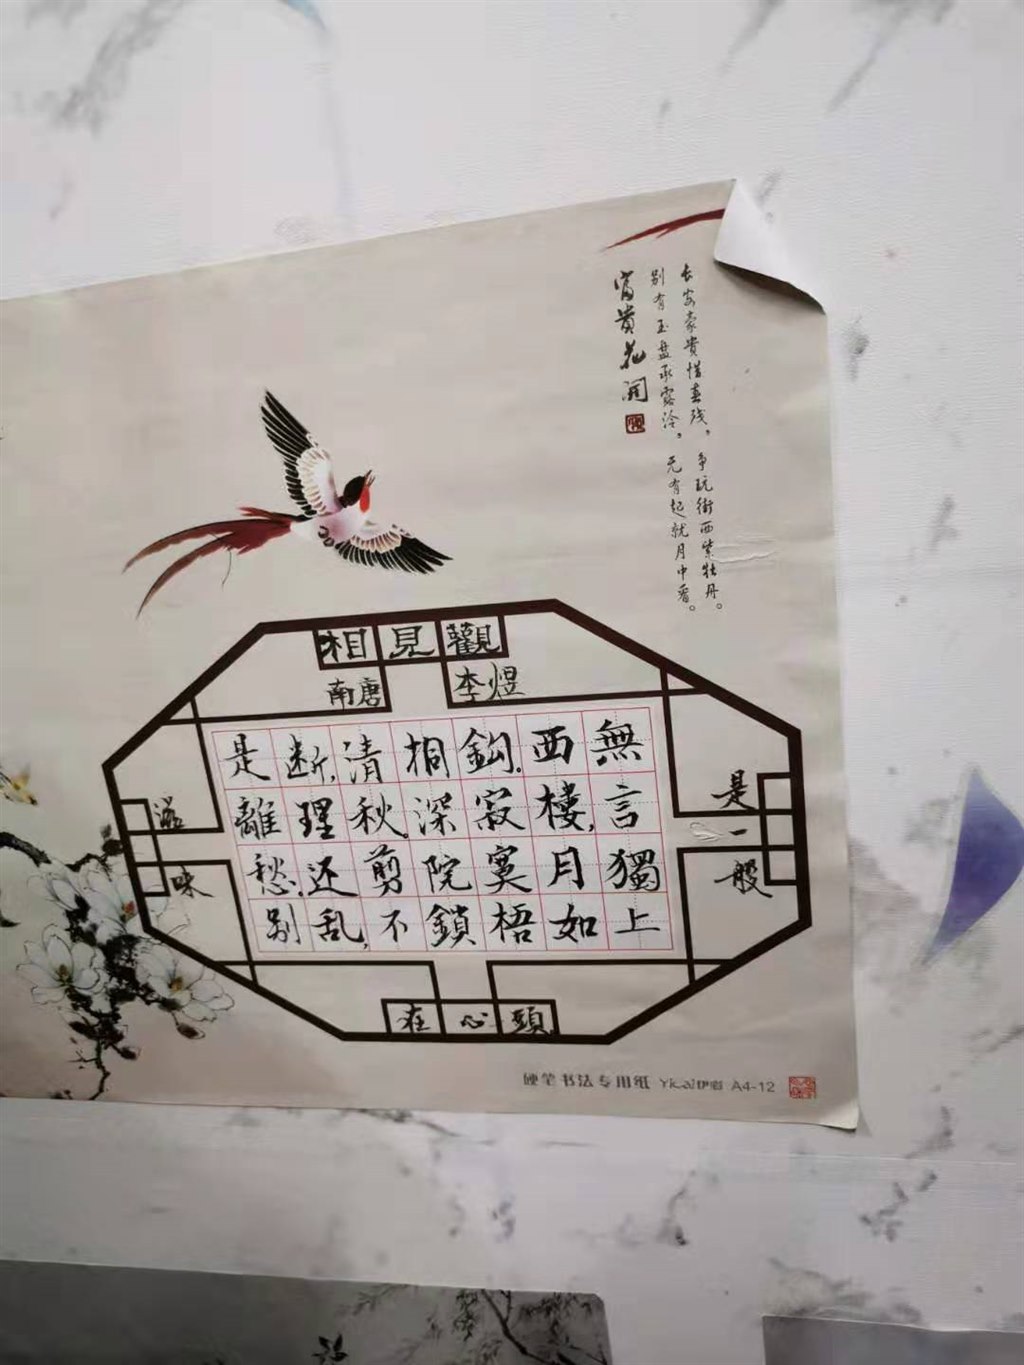 長安豪貴惜春殘，争玩街西紫牡丹。
别有玉盘承露冷，无有起就月中看。
富貴花開
相見觀
南唐
李煜
無言獨上
西樓，月如
鈎。寂寞梧
桐深院鎖
清秋。剪不
断，理还乱，
是離愁。别
是一般
滋味
在心頭
硬笔书法专用纸 Ykai伊彩 A4-12